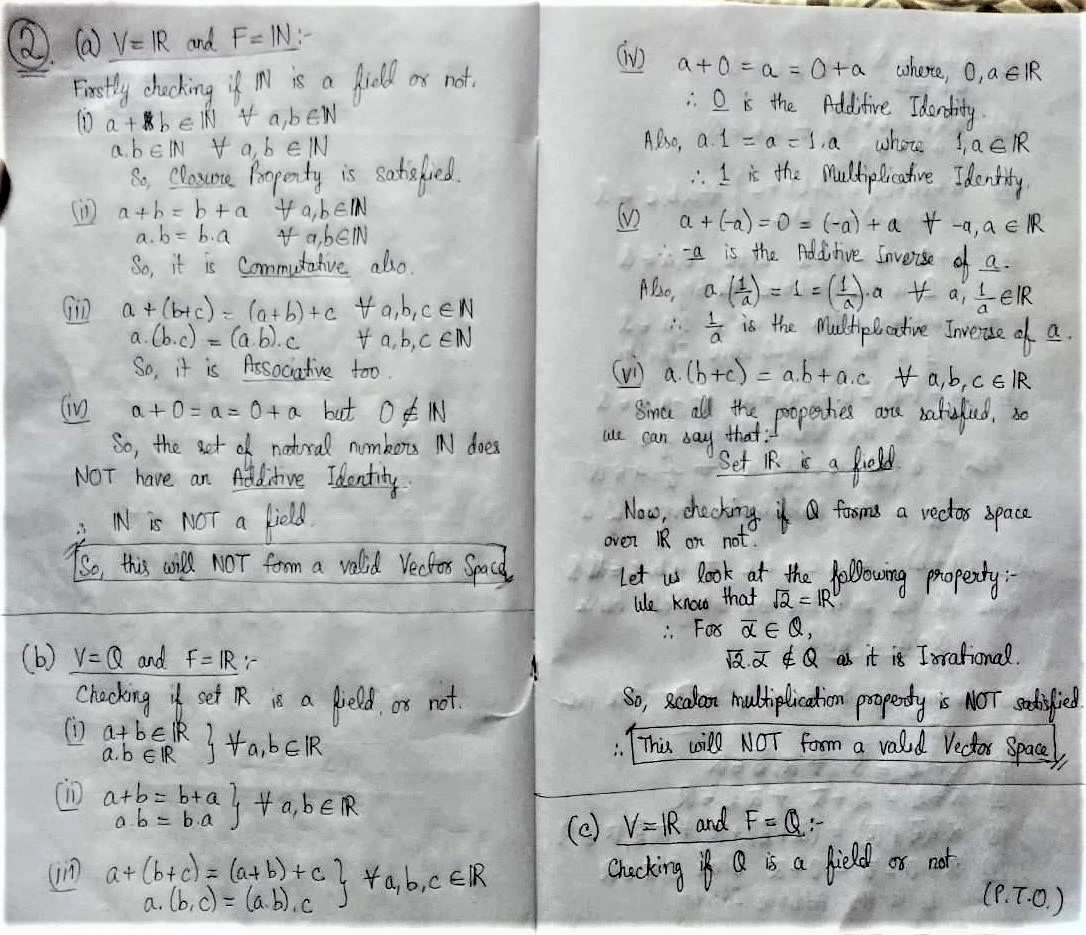 2. (a) V=ℝ and F=ℕ:-
Firstly checking if ℕ is a field or not.
(i) a+b∈ℕ ∀ a,b∈ℕ
a.b∈ℕ ∀ a,b∈ℕ
So, Closure Property is satisfied.
(ii) a+b=b+a ∀ a,b∈ℕ
a.b=b.a ∀ a,b∈ℕ
So, it is Commutative also.
(iii) a+(b+c)=(a+b)+c ∀ a,b,c∈ℕ
a.(b.c)=(a.b).c ∀ a,b,c∈ℕ
So, it is Associative too.
(iv) a+0=a=0+a but 0∉ℕ
So, the set of natural numbers ℕ does
NOT have an Additive Identity.
∴ ℕ is NOT a field.
So, this will NOT form a valid Vector Space
(b) V=Q and F=ℝ:-
Checking if set ℝ is a field or not.
(i) a+b∈ℝ
a.b∈ℝ } ∀ a,b∈ℝ
(ii) a+b=b+a
a.b=b.a } ∀ a,b∈ℝ
(iii) a+(b+c)=(a+b)+c
a.(b.c)=(a.b).c } ∀ a,b,c∈ℝ
(iv) a+0=a=0+a where, 0,a∈ℝ
∴ 0 is the Additive Identity.
Also, a.1=a=1.a where 1,a∈ℝ
∴ 1 is the Multiplicative Identity.
(v) a+(-a)=0=(-a)+a ∀ -a,a∈ℝ
∴ -a is the Additive Inverse of a.
Also, a.(1/a)=1=(1/a).a ∀ a,1/a∈ℝ
∴ 1/a is the Multiplicative Inverse of a.
(vi) a.(b+c)=a.b+a.c ∀ a,b,c∈ℝ
Since all the properties are satisfied, so
we can say that:-
Set ℝ is a field
Now, checking if Q forms a vector space
over ℝ or not.
Let us look at the following property:-
We know that √2=ℝ
∴ For ᾱ∈Q,
√2.ᾱ∉Q as it is Irrational.
So, scalar multiplication property is NOT satisfied.
∴ This will NOT form a valid Vector Space
(c) V=ℝ and F=Q:-
Checking if Q is a field or not.
(P.T.O.)